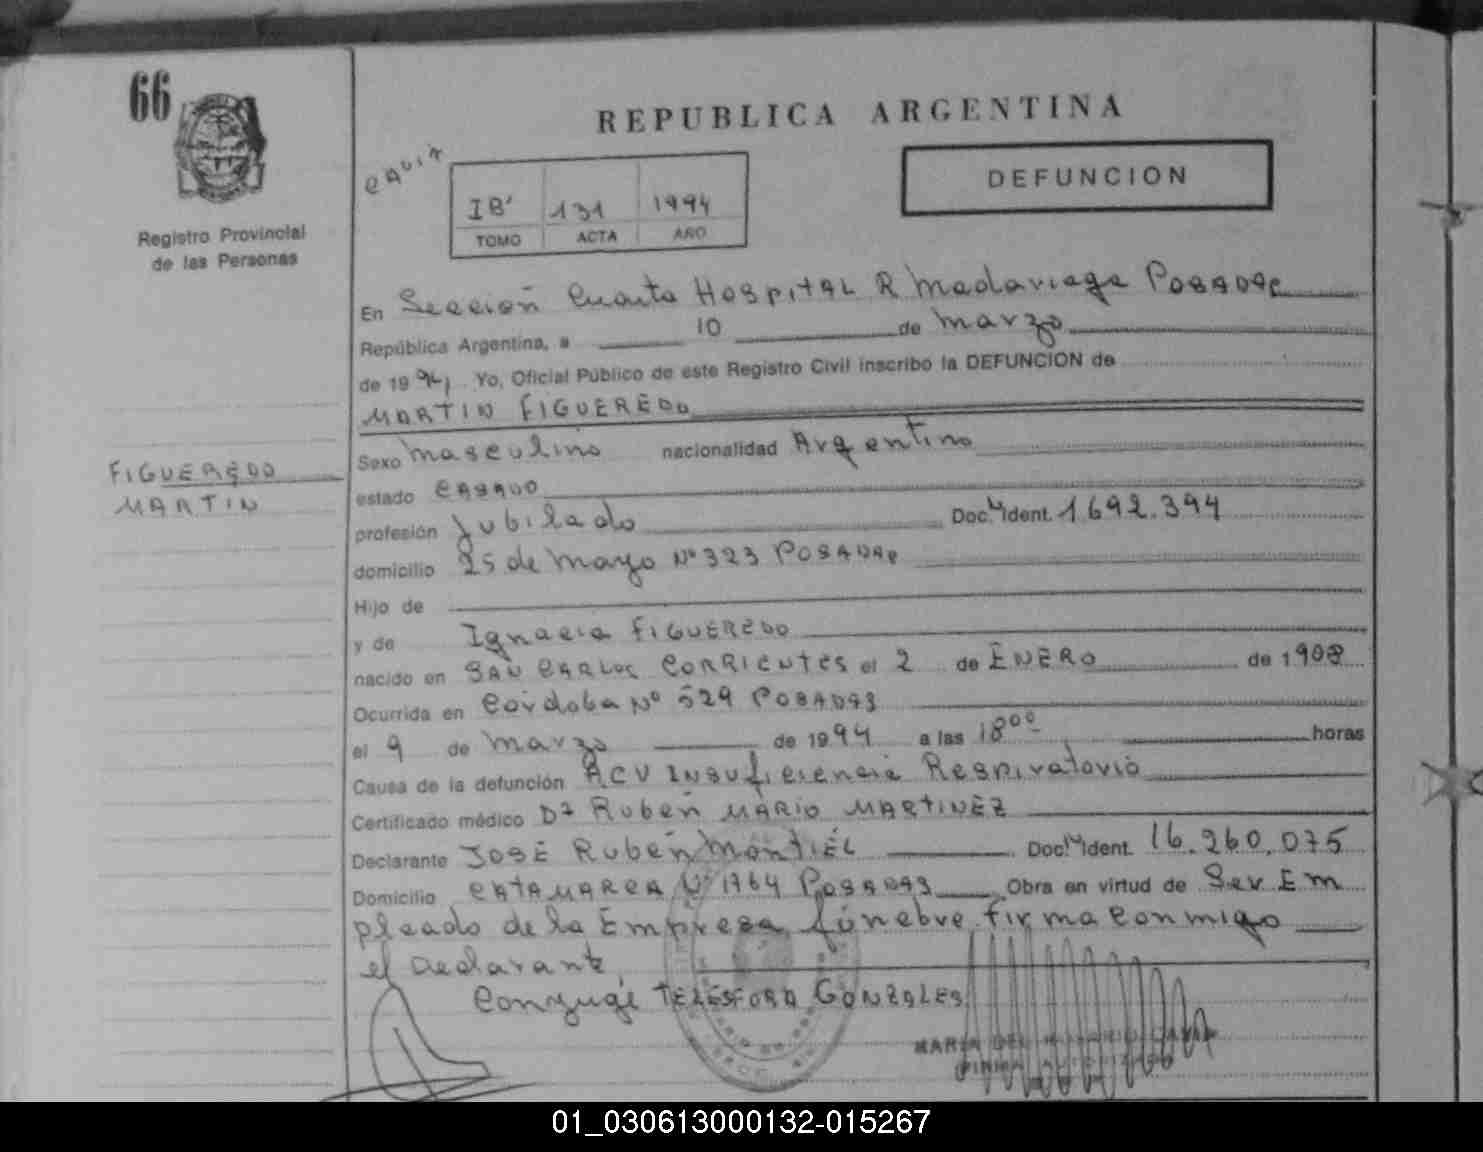 66
REPUBLICA ARGENTINA
DEFUNCION
IB' 131 1994
TOMO ACTA AÑO
Registro Provincial
de las Personas
En Sección Cuarta Hospital R Madariaga Posadas
República Argentina, a 10 de marzo
de 1994. Yo, Oficial Público de este Registro Civil inscribo la DEFUNCION de
MARTIN FIGUEREDO
FIGUEREDO
MARTIN
Sexo masculino nacionalidad Argentino
estado CASADO
profesión Jubilado Doc. Ident. 1.692.394
domicilio 25 de mayo Nº 323 POSADAS
Hijo de
y de Ignacia FIGUEREDO
nacido en SAN CARLOS CORRIENTES el 2 de ENERO de 1908
Ocurrida en Córdoba Nº 529 POSADAS
el 9 de marzo de 1994 a las 18⁰⁰ horas
Causa de la defunción ACV INSuficiencia Respiratoria
Certificado médico Dr Rubén MARIO MARTINEZ
Declarante JOSE Rubén MONTIEL Doc. Ident. 16.260.075
Domicilio CATAMARCA Nº 1764 POSADAS Obra en virtud de Ser Em
pleado de la Empresa fúnebre. firma conmigo
el Declarante,
Conyuge TELESFORA GONZALES
MARIA DEL
01_030613000132-015267